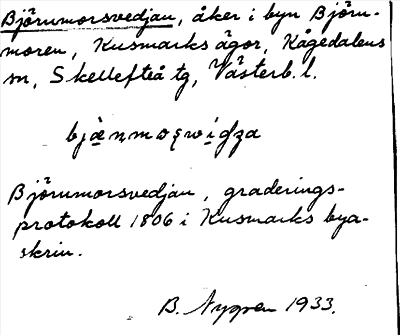 Björnmorsvedjan, åker i byn Björn-
moren, Kusmarks ägor, Kågedalens
sn, Skellefteå tg, Västerb. l.
Björnmorsvedjan, graderings-
protokoll 1806 i Kusmarks bya-
skrin.
B. Nygren 1933.